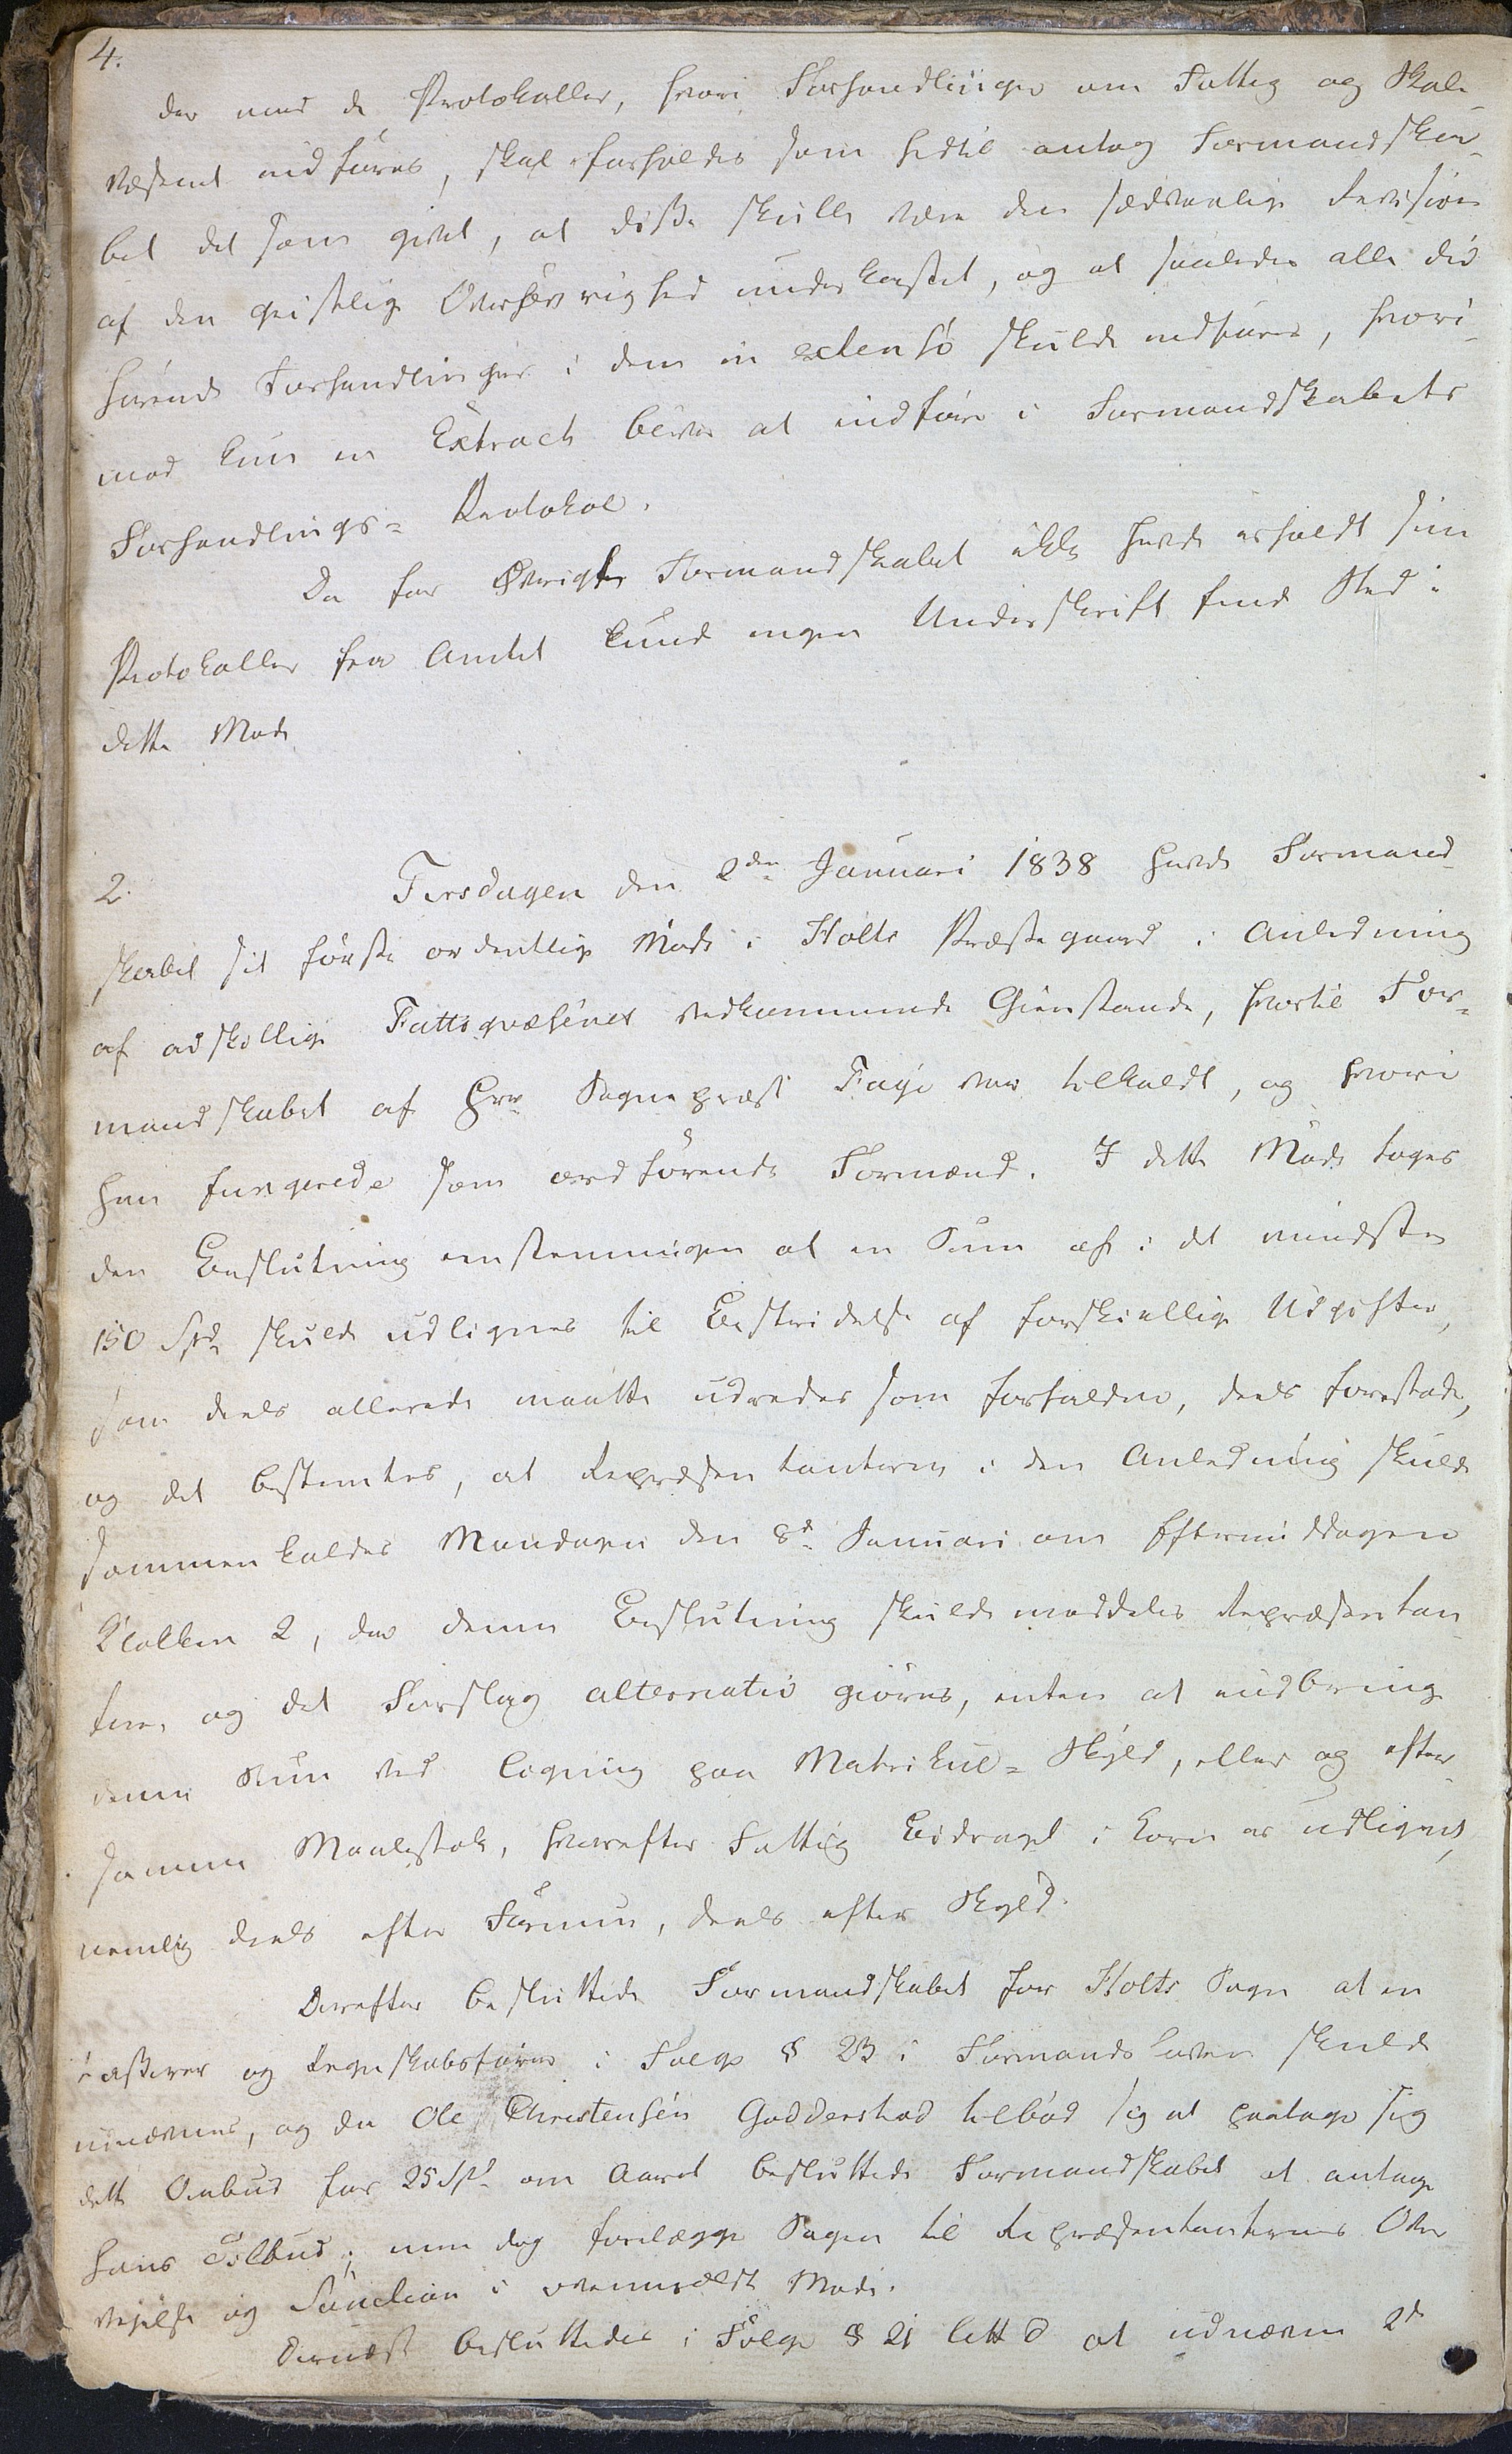 4.
der med de Protokoller, hvori Forhandlinger om Fattig og Skole
væsenet indføres, skal forholdes som hidtil antog Formandska-
bet det som givet, at disse skulle være den sædvanlige Revision
af den geistlige Overøvrighed underkastet, og at saaledes alle did
hørende Forhandlinger i dem in extenso skulde indføres, hvori
mod kun en Extract blev at indføre i Formandskabets
Forhandlings= Protokol.
Da for Øvrigt Formandskabet ikke havde erholdt sine
Protokoller fra Amtet kunde ingen Underskrift finde Sted i
dette Møde
2. Tirsdagen den 2den Januari 1838 havde Formand
skabet sit første ordentlige Møde i Holts Præstegaard i Anledning
af adskillige Fattigvæsenet vedkommende Gienstande, hvortil For-
mandskabet af Hrr Sognepræst Faye var tilkaldt, og hvori
han fungerede som ordførende Formand. I dette Møde toges
den Beslutning eenstemmigen at en Sum af i det mindste
150 Spd skulde udlignes til Bestridelse af forskiellige Udgifter,
som deels allerede maatte udredes som forfaldne, deels forestode,
og det bestemtes, at Repræsentanterne i den Anledning skulde
sammenkaldes Mandagen den 8d Januari om Eftermiddagen
Klokken 2, da denne Beslutning skulde meddeles Repræsentan
terne, og det Forslag alternativ giøres, enten at indbringe
denne Sum ved Ligning paa Matrikul= Skyld, eller og efter
samme Maalestok, hvorefter Fattig Bidraget i Korn er udlignet,
nemlig deels efter Formue, deels efter Skyld.
Derefter besluttede Formandskabet for Holts Sogn at en
Casserer og Regnskabsfører i Følge § 23 i Formandsloven skulde
udnævnes, og da Ole Christensen Godderstad tilbød sig at paatage sig
dette Ombud for 25 Spd om Aaret besluttede Formandskabet at antage
hans Tilbud; men dog forelægge Sagen til Repræsentanternes Over
veielse og Sanction i ovenmeldte Møde.
Dernæst besluttedes i Følge § 21 litt d at udnævne 2de